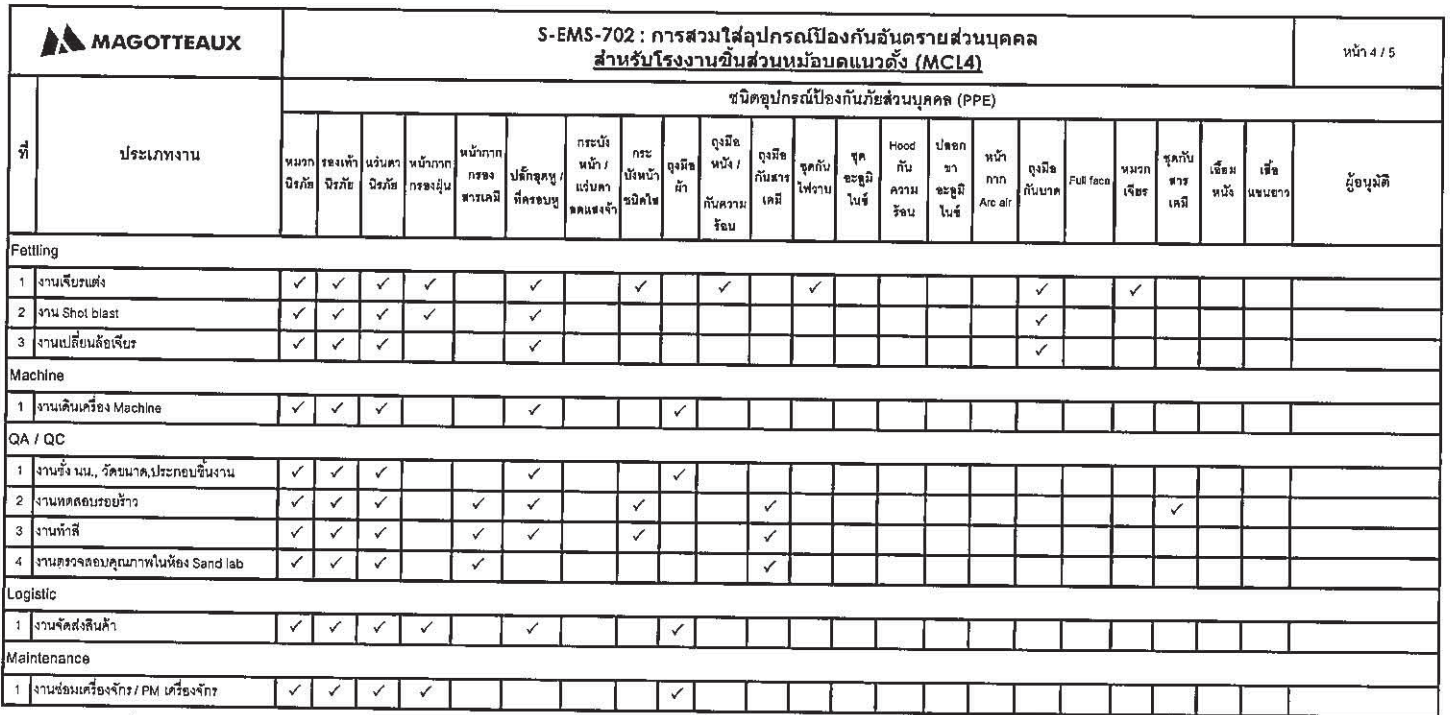 MAGOTTEAUX
S-EMS-702 : การสวมใส่อุปกรณ์ป้องกันอันตรายส่วนบุคคล
สำหรับโรงงานชิ้นส่วนหม้อบดแนวตั้ง (MCL4)
หน้า 4 / 5
ที่
ประเภทงาน
ชนิดอุปกรณ์ป้องกันภัยส่วนบุคคล (PPE)
หมวก
นิรภัย
รองเท้า
นิรภัย
แว่นตา
นิรภัย
หน้ากาก
กรองฝุ่น
หน้ากาก
กรอง
สารเคมี
ปลั๊กอุดหู /
ที่ครอบหู
กระบัง
หน้า /
แว่นตา
ลดแสงจ้า
กระ
บังหน้า
ชนิดใส
ถุงมือ
ผ้า
ถุงมือ
หนัง /
กันความ
ร้อน
ถุงมือ
กันสาร
เคมี
ชุดกัน
ไฟวาบ
ชุด
อะลูมิ
ไนซ์
Hood
กัน
ความ
ร้อน
ปลอก
ขา
อะลูมิ
ไนซ์
หน้า
กาก
Arc air
ถุงมือ
กันบาด
Full face
หมวก
เจียร
ชุดกัน
สาร
เคมี
เอี๊ยม
หนัง
เสื้อ
แขนยาว
ผู้อนุมัติ
Fettling
1 งานเจียรแต่ง ✓ ✓ ✓ ✓ ✓ ✓ ✓ ✓ ✓ ✓
2 งาน Shot blast ✓ ✓ ✓ ✓ ✓ ✓
3 งานเปลี่ยนล้อเจียร ✓ ✓ ✓ ✓ ✓
Machine
1 งานเดินเครื่อง Machine ✓ ✓ ✓ ✓ ✓
QA / QC
1 งานชั่ง นน., วัดขนาด,ประกอบชิ้นงาน ✓ ✓ ✓ ✓ ✓
2 งานทดสอบรอยร้าว ✓ ✓ ✓ ✓ ✓ ✓ ✓ ✓
3 งานทำสี ✓ ✓ ✓ ✓ ✓ ✓ ✓
4 งานตรวจสอบคุณภาพในห้อง Sand lab ✓ ✓ ✓ ✓ ✓
Logistic
1 งานจัดส่งสินค้า ✓ ✓ ✓ ✓ ✓ ✓
Maintenance
1 งานซ่อมเครื่องจักร / PM เครื่องจักร ✓ ✓ ✓ ✓ ✓